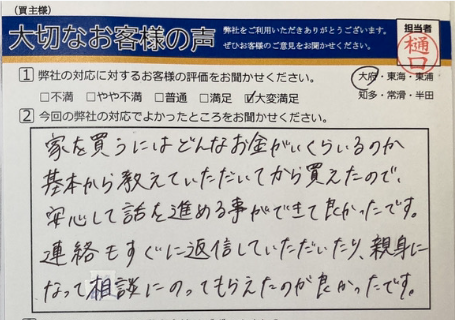 （買主様）
大切なお客様の声
弊社をご利用いただきありがとうございます。
ぜひお客様のご意見をお聞かせください。
担当者
樋口
1 弊社の対応に対するお客様の評価をお聞かせください。
□不満 □やや不満 □普通 □満足 ☑大変満足
大府・東海・東浦
知多・常滑・半田
2 今回の弊社の対応でよかったところをお聞かせください。
家を買うにはどんなお金がいくらいるのか
基本から教えていただいてから買えたので、
安心して話を進める事ができて良かったです。
連絡もすぐに返信していただいたり、親身に
なって相談にのってもらえたのが良かったです。